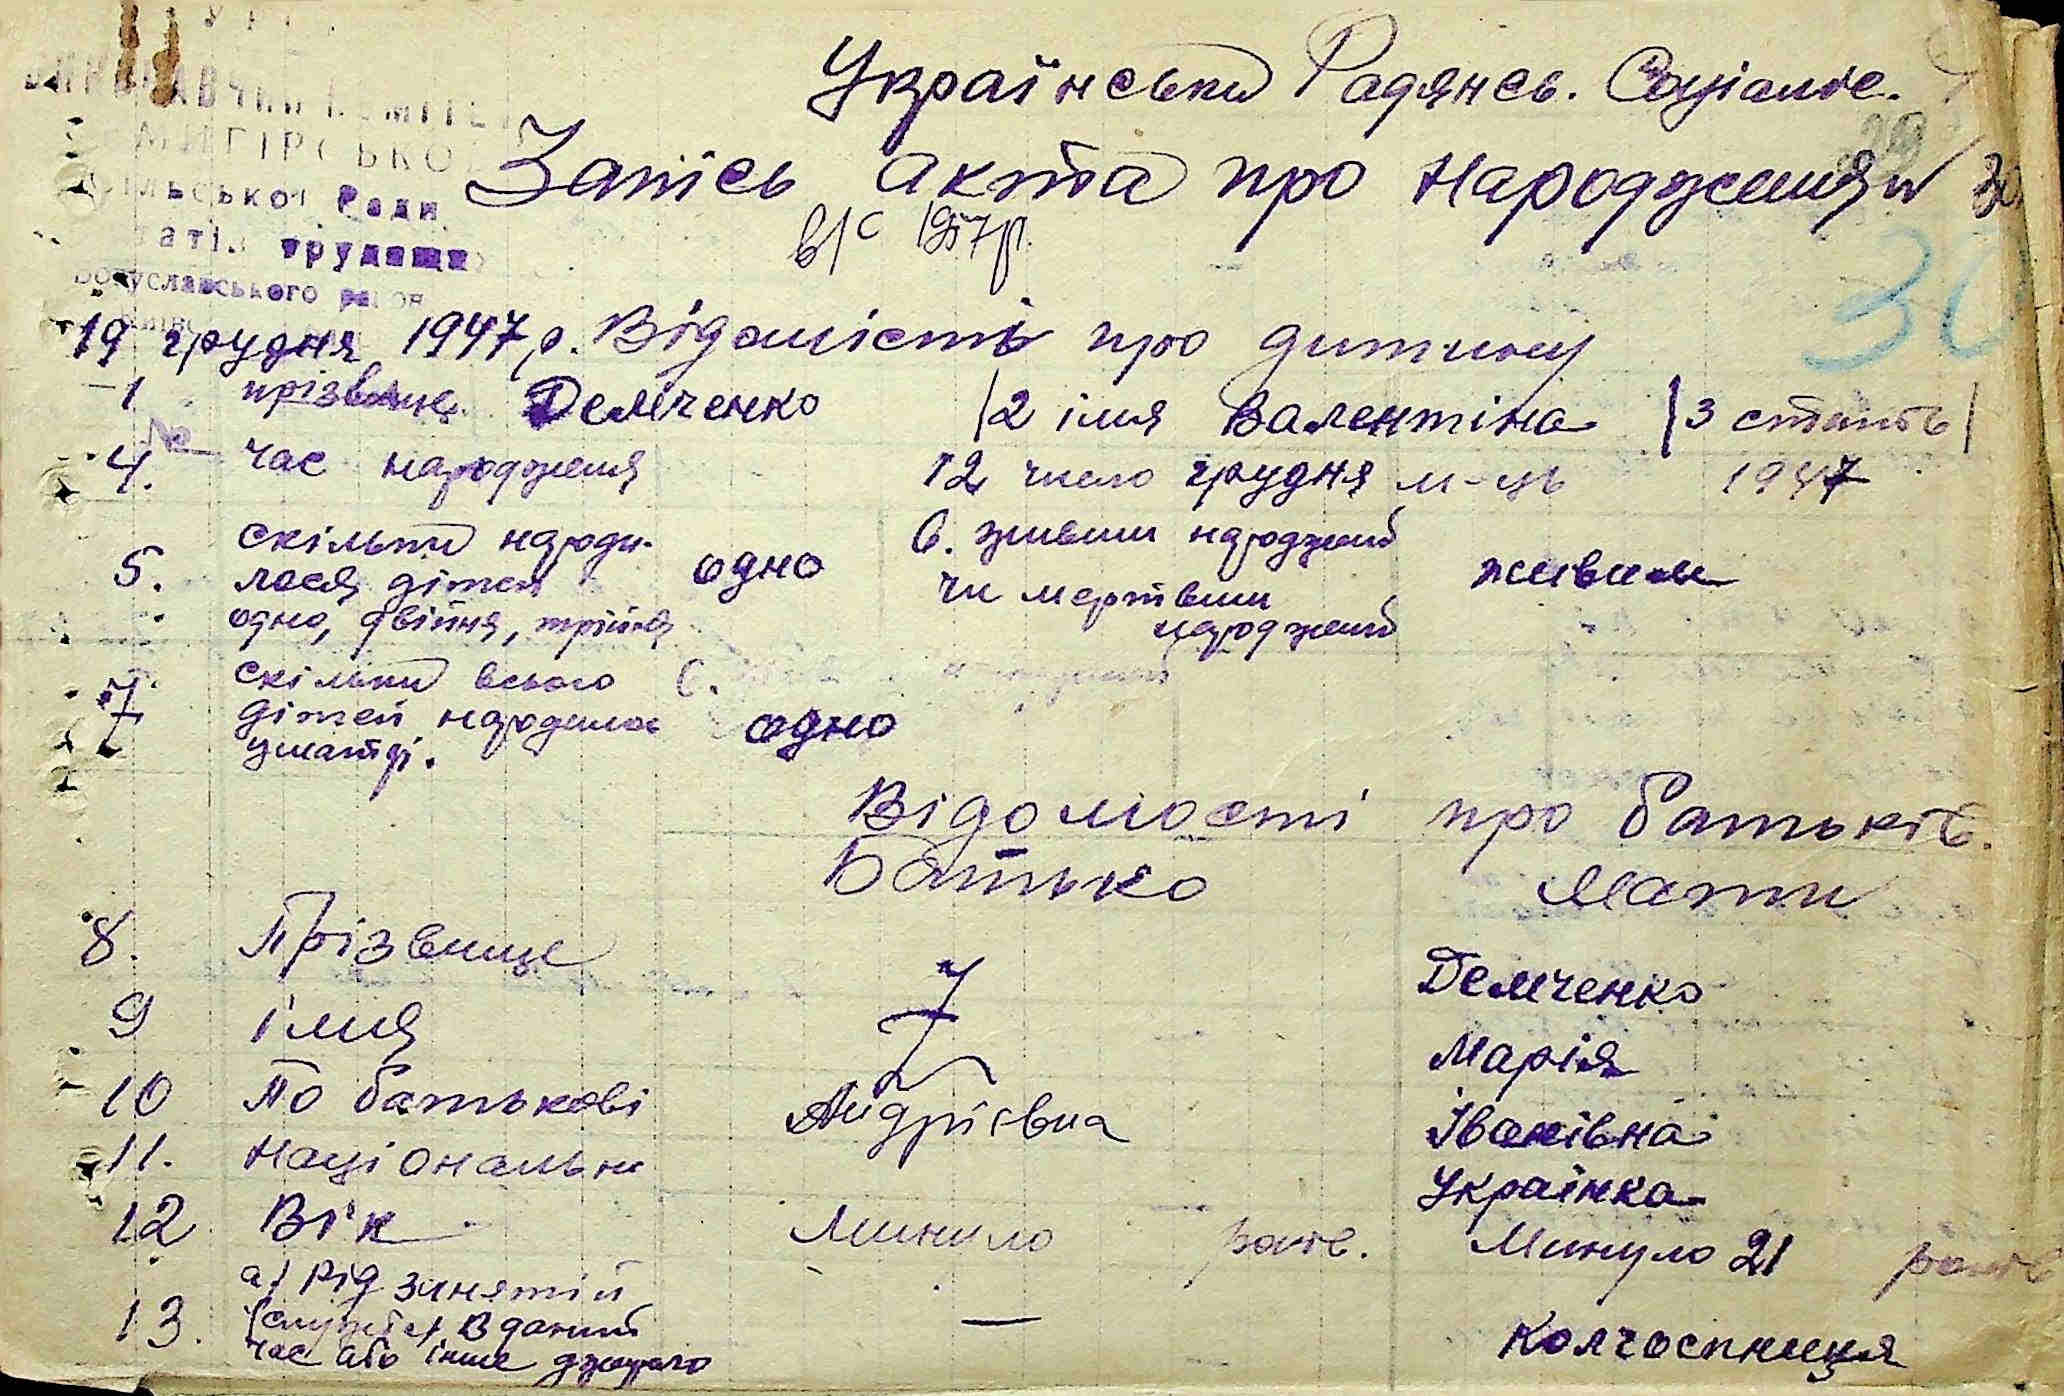 УРСР
ВИКОНАВЧИЙ КОМІТЕТ
МИГІРСЬКОЇ
СІЛЬСЬКОЇ Ради
трудящих
Богуславського район
Українськи Радянсь. Соціаліс.
Запісь акта про народження 30
в/с 1957р.
30
19 грудня 1947 р. Відомість про дитину
1 прізвищ. Демченко |2 імя Валентіна |3 стать|
№
4. час народженя 12 число грудня м-ць 1947
5. скільки народи-
лося дітей
одно, двійня, трійня
одно
6. живим народжений
чи мертвим
народжений
живим
7 скільки всього
дітей народилось
у матері.
одно
Відомості про батьків.
Батько Мати
8. Прізвище Демченко
9 імия Марія
10 По батькові Андрієвна Іванівна
11. Національни Українка
12 Вік Минуло років. Минуло 21 років
13. а) Рід занятій
(служби) В даний
час або інше джерело
— Колгоспниця